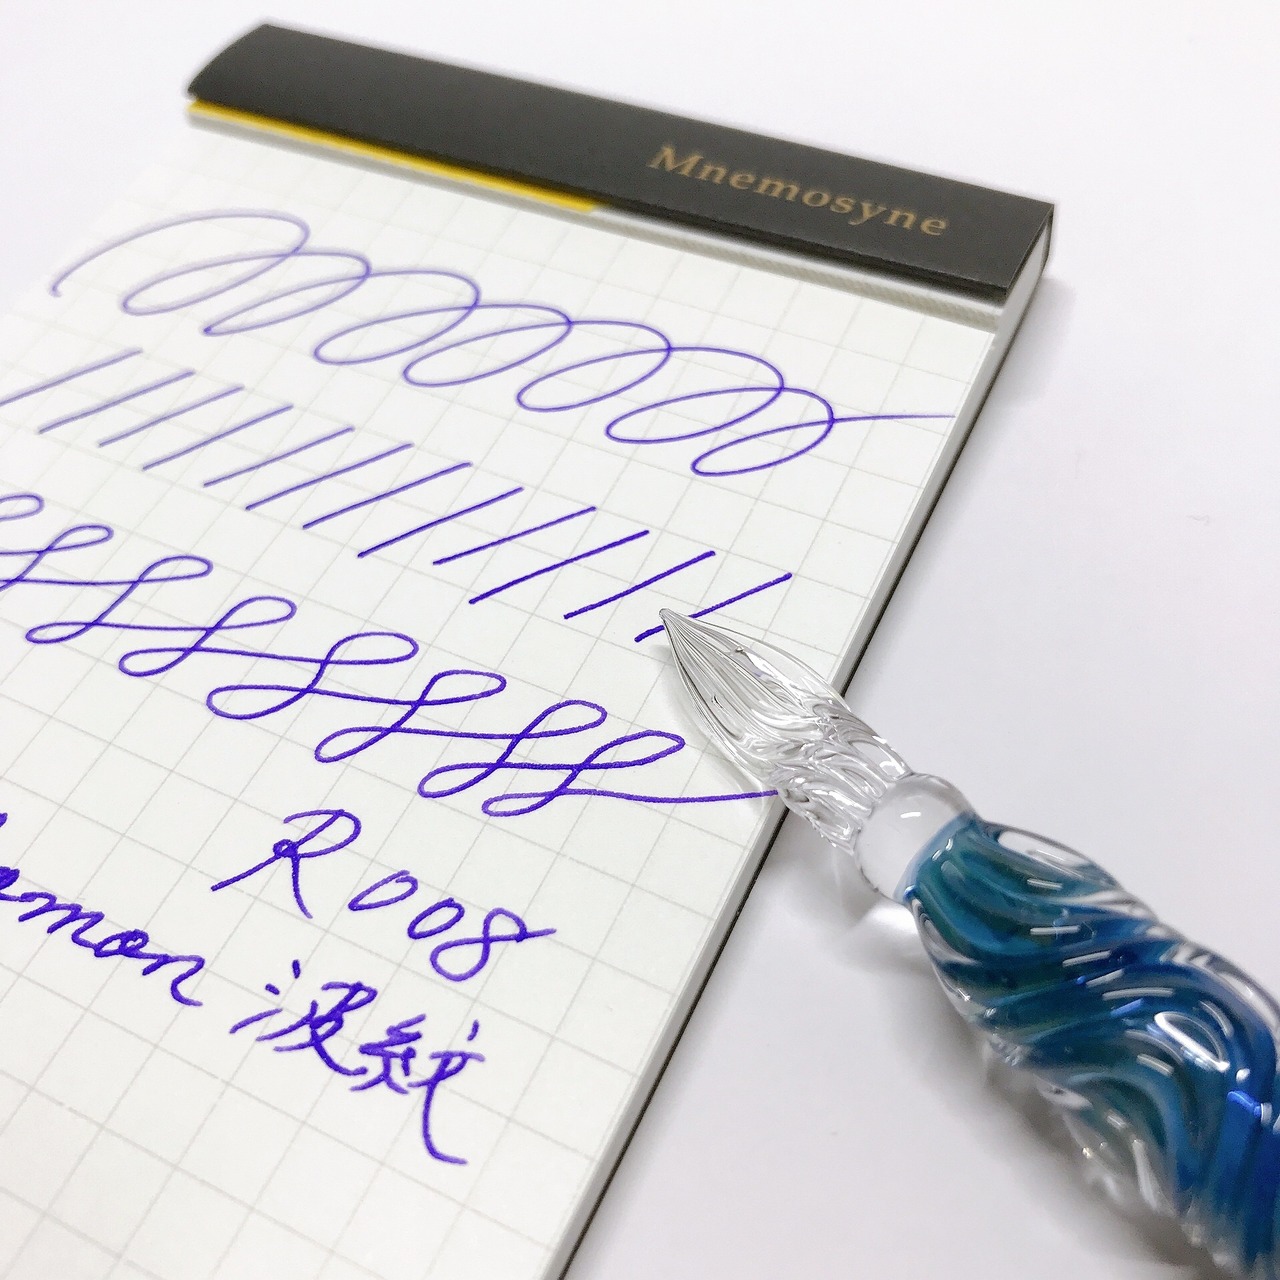 Mnemosyne
R008
amon 波紋